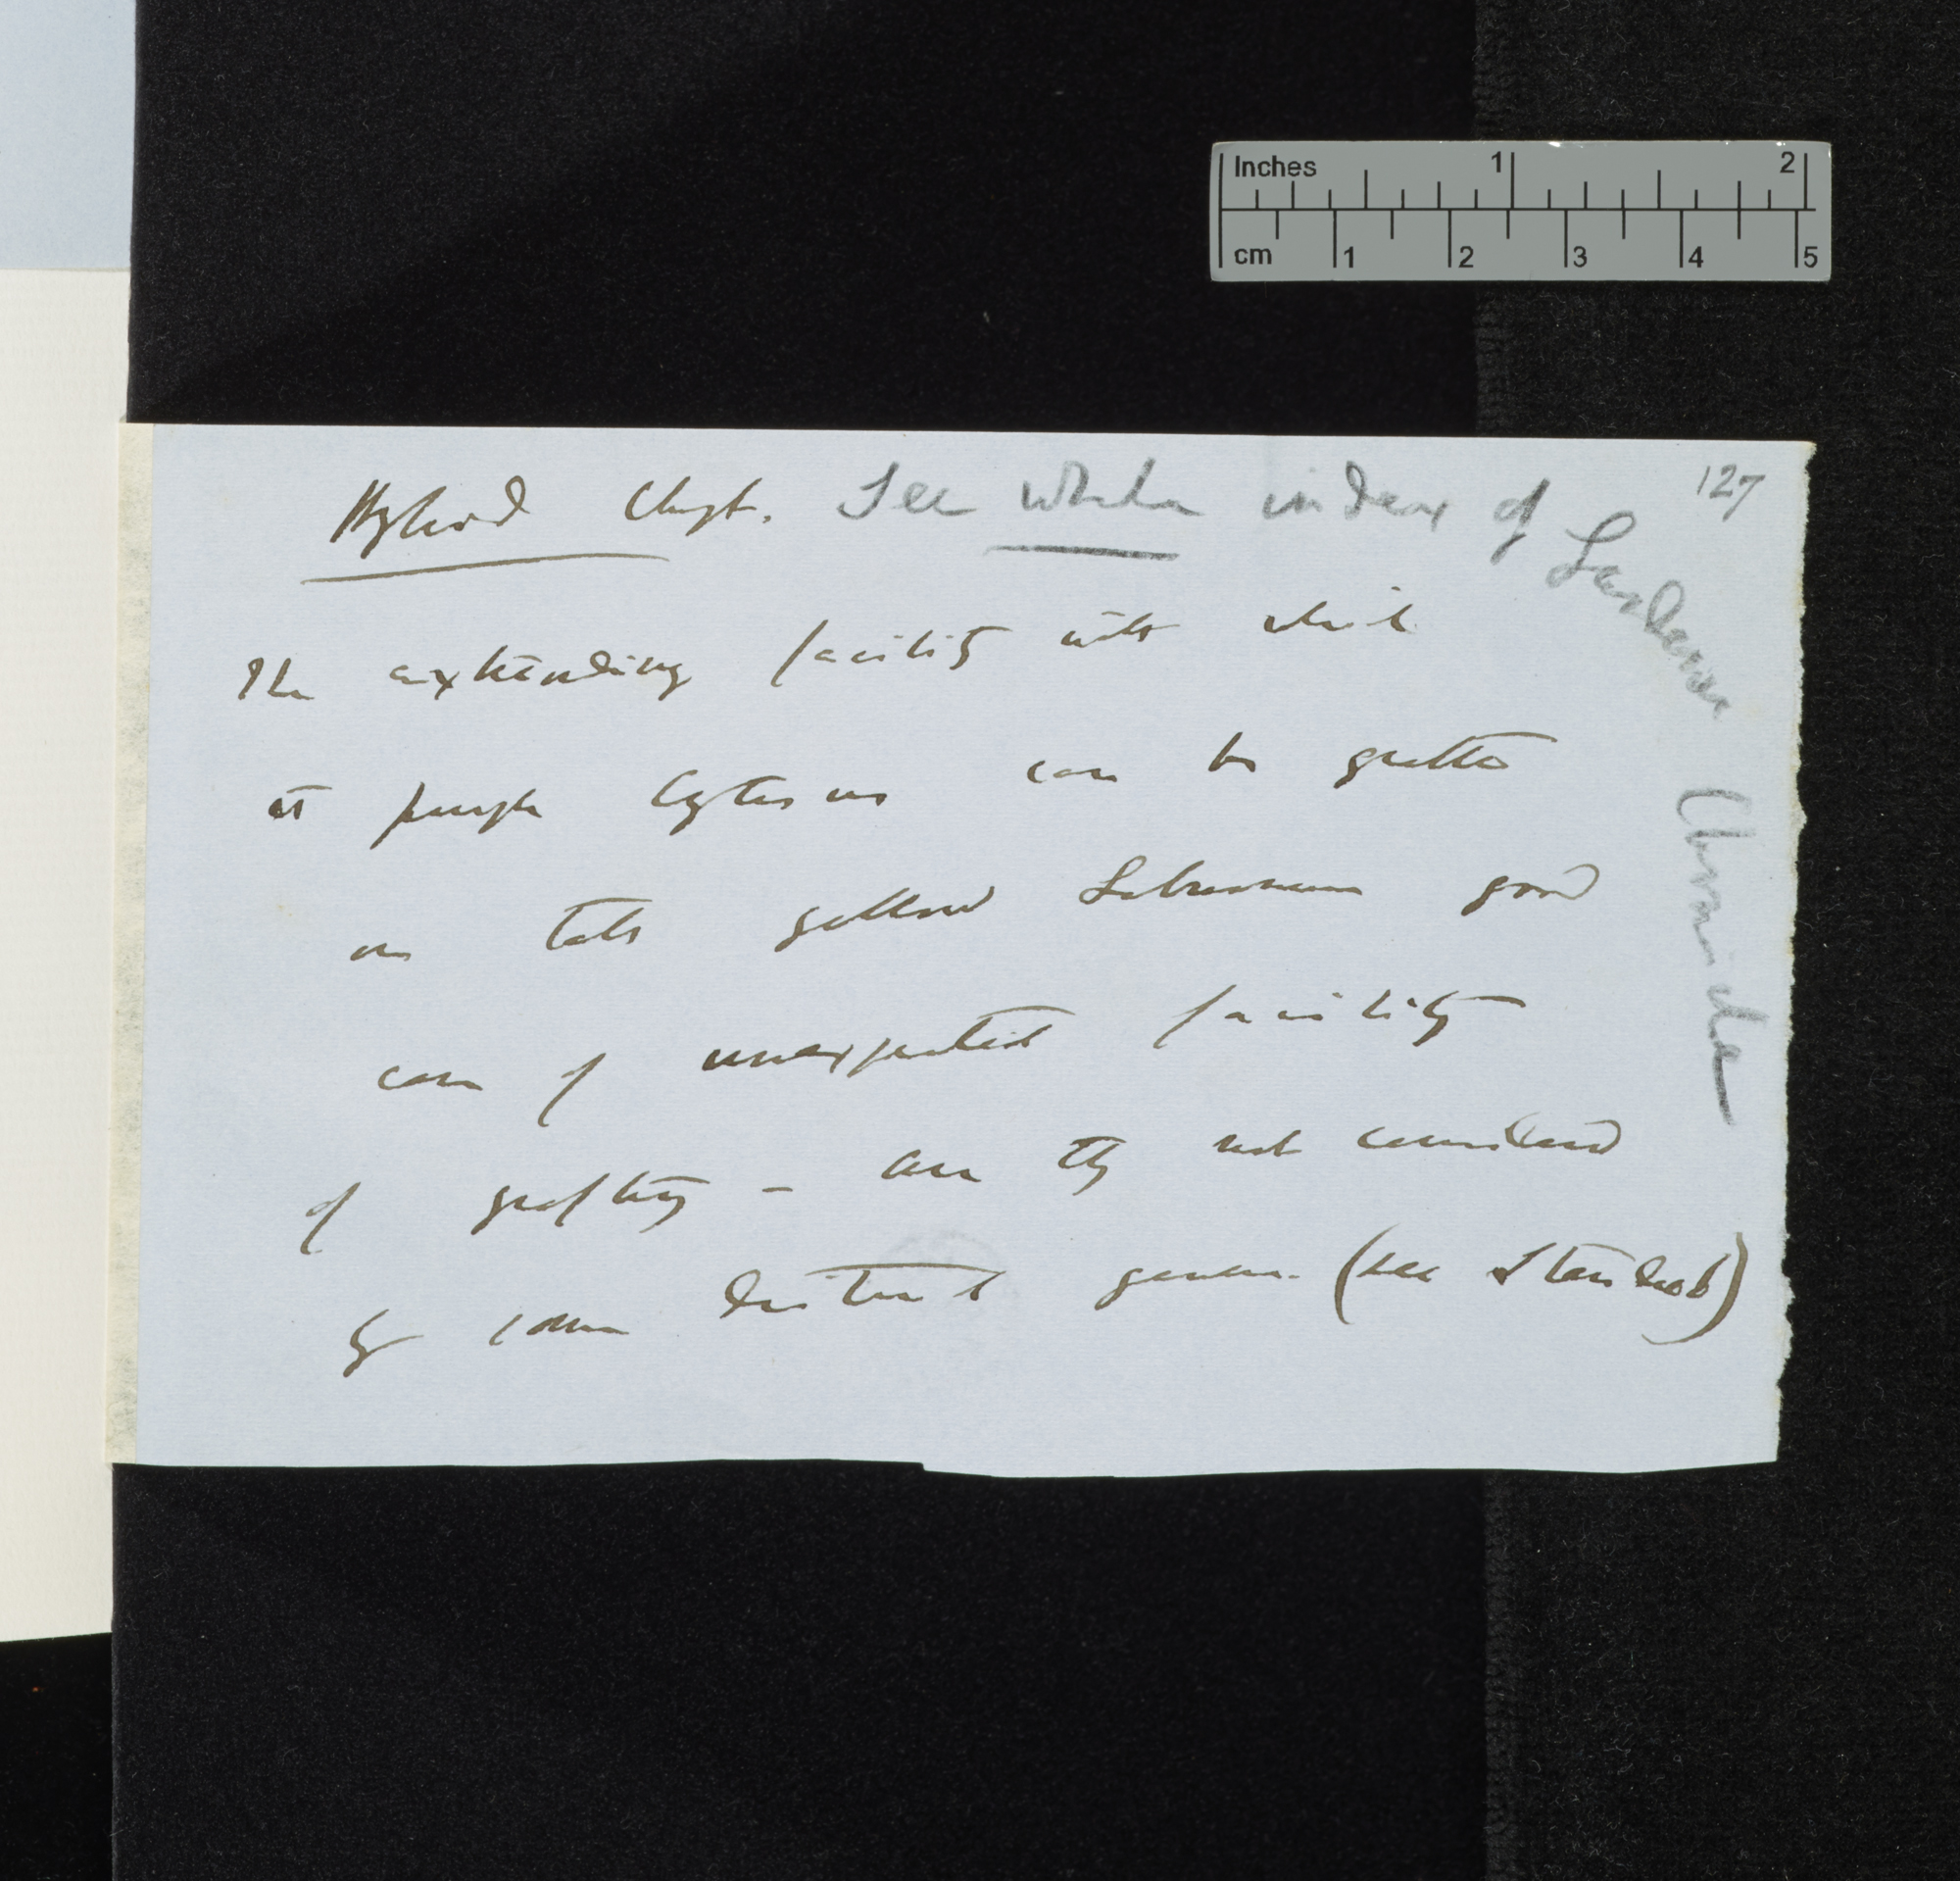 Inches 1 2
cm 1 2 3 4 5
127
Hybrid Chapt. See whole index of Gardeners Chronicle
The extending facility with which
purple Cytisus can be grafted
on tall yellow Laburnum good
case of unexpected facility
of grafting – are they not considered
by some distinct genera. (see Steudel)